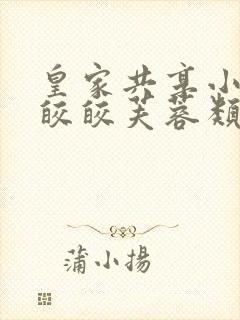 皇家共享小
皎皎芙蓉颊
蒲小揚